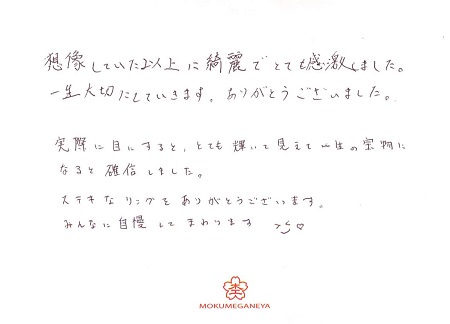 想像していた以上に綺麗でとても感激しました。
一生大切にしていきます。ありがとうございました。
実際に目にすると、とても輝いて見えて一生の宝物に
なると確信しました。
ステキなリングをありがとうございます。
みんなに自慢してまわります
MOKUMEGANEYA